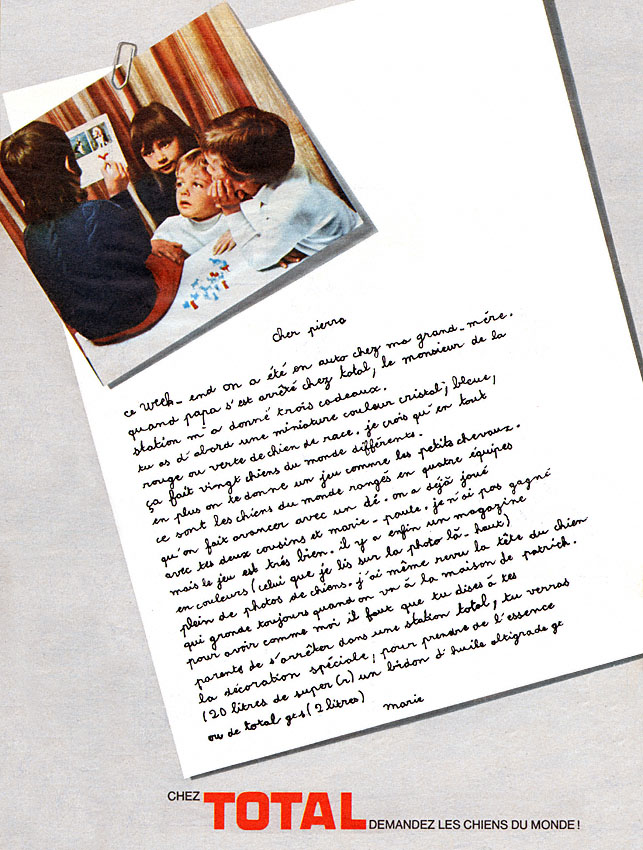 cher pierre
ce week-end on a été en auto chez ma grand-mère.
quand papa s'est arrêté chez total, le monsieur de la
station m'a donné trois cadeaux.
tu as d'abord une miniature couleur cristal, bleue,
rouge ou verte de chien de race. je crois qu'en tout
ça fait vingt chiens du monde différents.
en plus on te donne un jeu comme les petits chevaux.
ce sont les chiens du monde rangés en quatre équipes
qu'on fait avancer avec un dé. on a déjà joué
avec tes deux cousins et marie-paule. je n'ai pas gagné
mais le jeu est très bien. il y a enfin un magazine
en couleurs (celui que je lis sur la photo là-haut)
plein de photos de chiens. j'ai même revu la tête du chien
qui gronde toujours quand on va à la maison de patrick.
pour avoir comme moi il faut que tu dises à tes
parents de s'arrêter dans une station total, tu verras
la décoration spéciale, pour prendre de l'essence
(20 litres de super (r) un bidon d'huile altigrade gt
ou de total gts (2 litres)
marie
CHEZ TOTAL DEMANDEZ LES CHIENS DU MONDE !